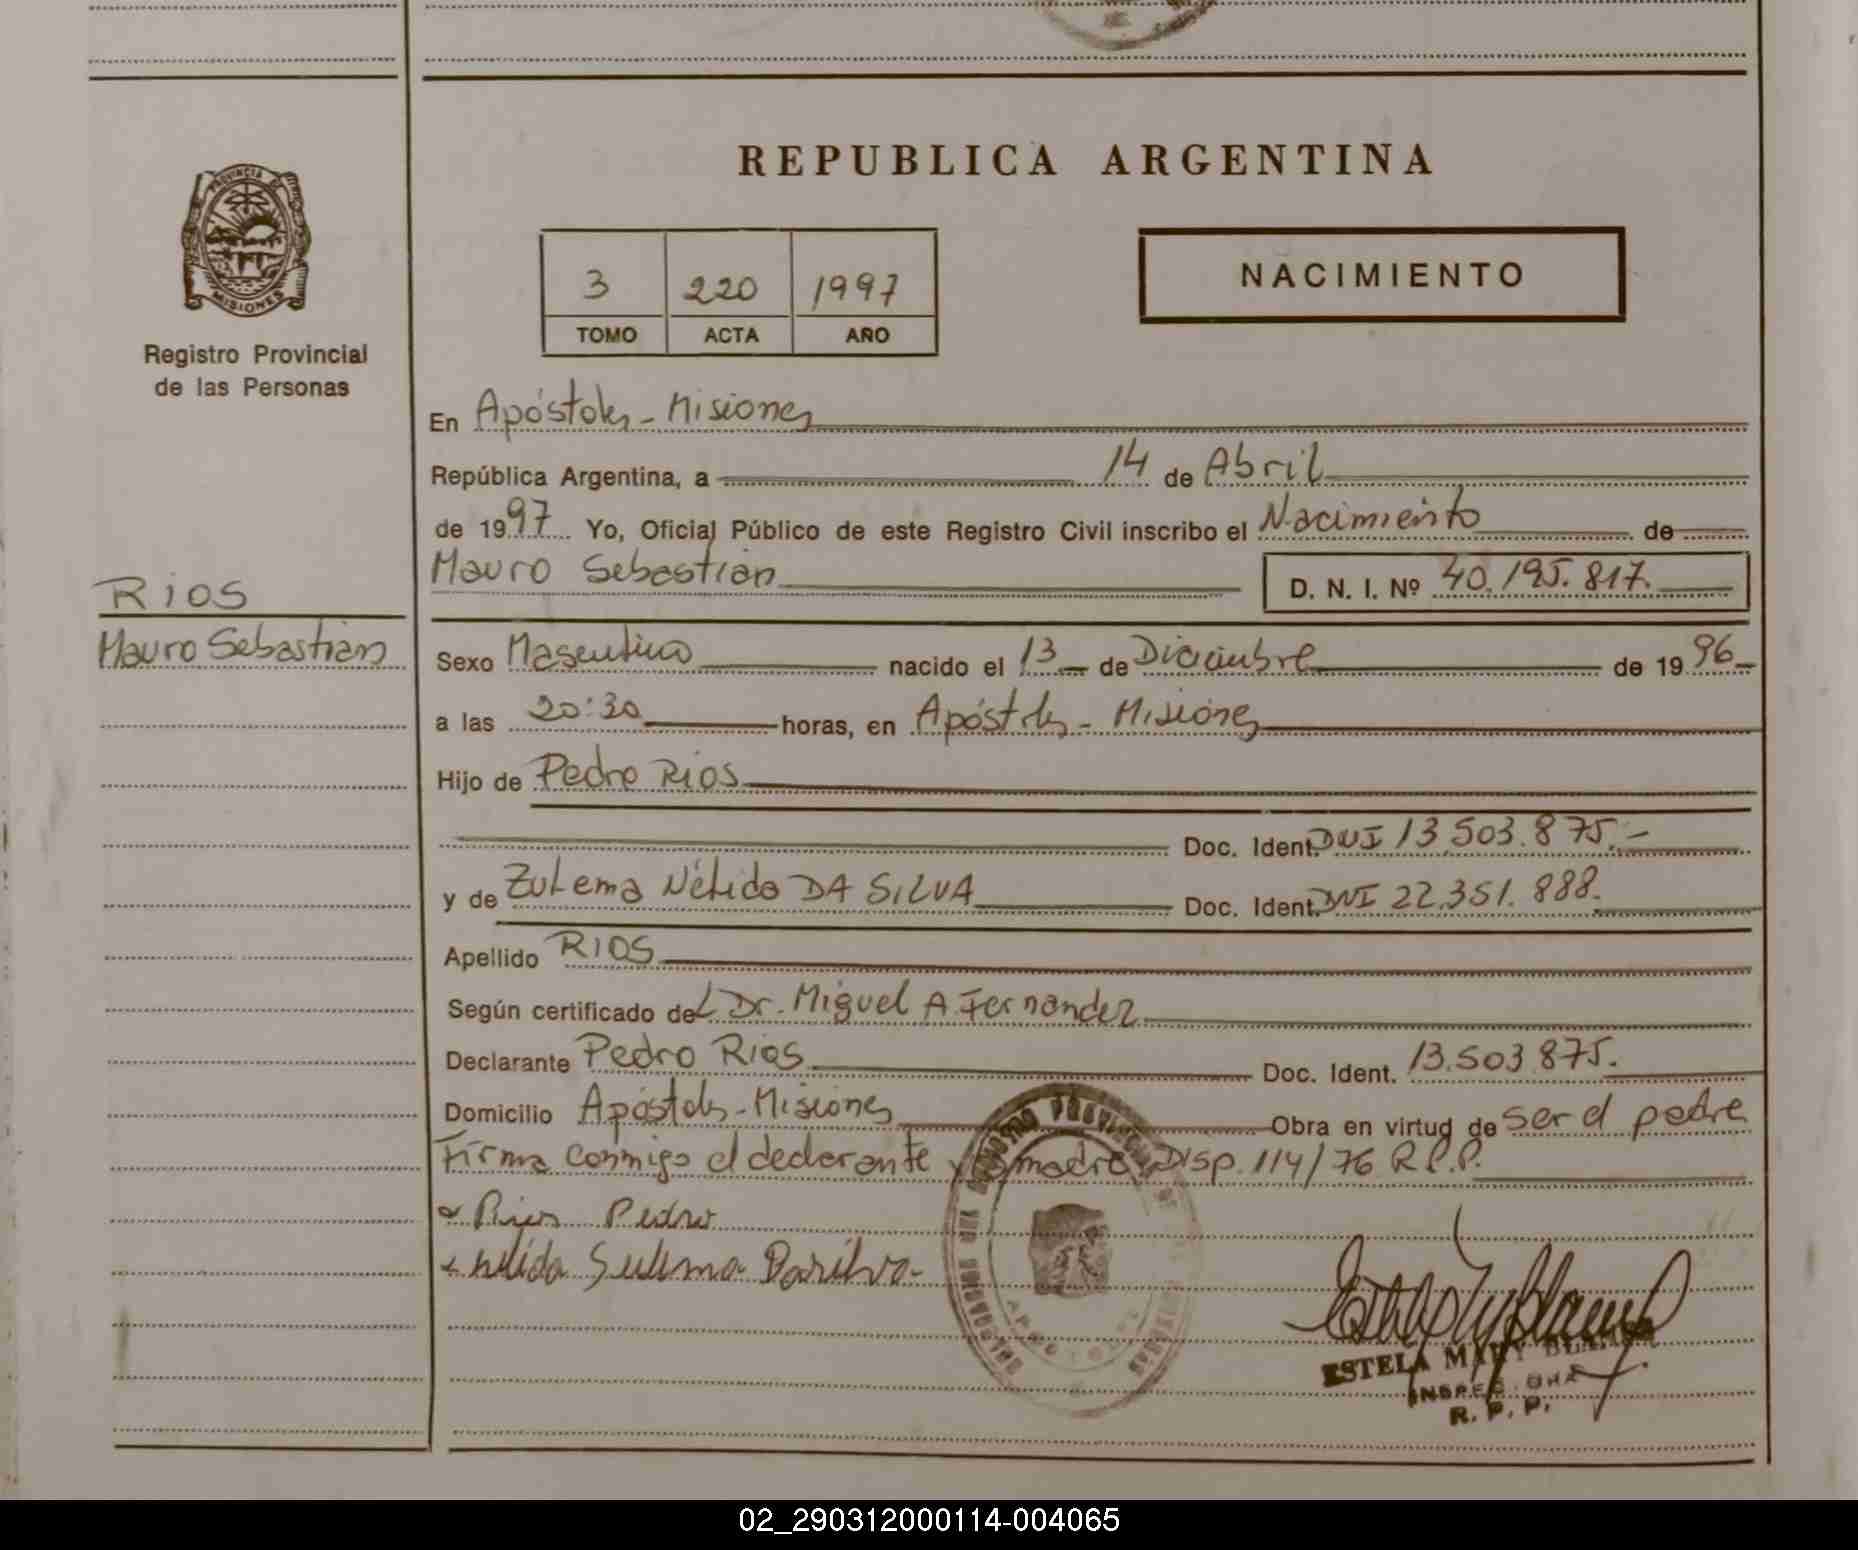 REPUBLICA ARGENTINA
PROVINCIA DE
MISIONES
Registro Provincial
de las Personas
3 220 1997
TOMO ACTA AÑO
NACIMIENTO
En Apóstoles - Misiones
República Argentina, a 14 de Abril
de 1997 Yo, Oficial Público de este Registro Civil inscribo el Nacimiento de
Mauro Sebastián D. N. I. Nº 40.195.817.
RIOS
Mauro Sebastián
Sexo Masculino nacido el 13 de Diciembre de 1996
a las 20:30 horas, en Apóstoles - Misiones
Hijo de Pedro Rios
Doc. Ident. DNI 13.503.875.-
y de Zulema Nélida DA SILVA Doc. Ident. DNI 22.351.888.
Apellido RIOS
Según certificado del Dr. Miguel A Fernandez
Declarante Pedro Rios Doc. Ident. 13.503.875.
Domicilio Apóstoles - Misiones Obra en virtud de ser el padre
Firma conmigo el declarante y madre Disp. 114/76 R.P.P.
Rios Pedro
Nelida Sulema Dasilva
ESTELA MARY
R. P. P.
02_290312000114-004065